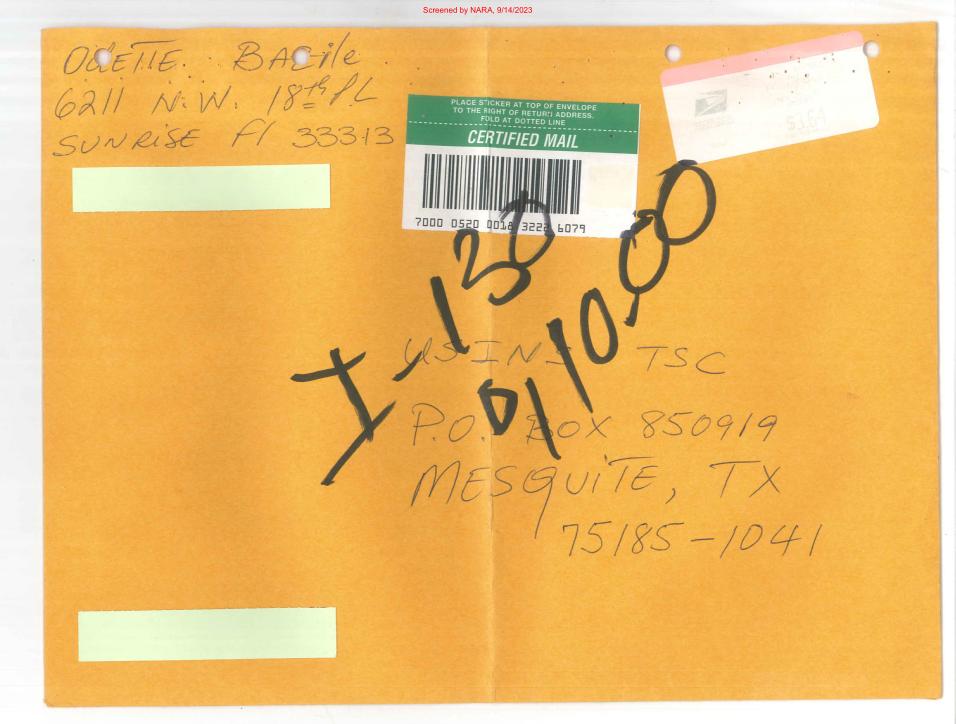 Screened by NARA, 9/14/2023
ODETTE BAZile
6211 N.W. 18th PL
SUNRISE Fl 33313
PLACE STICKER AT TOP OF ENVELOPE
TO THE RIGHT OF RETURN ADDRESS.
FOLD AT DOTTED LINE
CERTIFIED MAIL
7000 0520 0018 3222 6079
I-130
0110.00
US INS TSC
P.O. BOX 850919
MESQUITE, TX
75185-1041